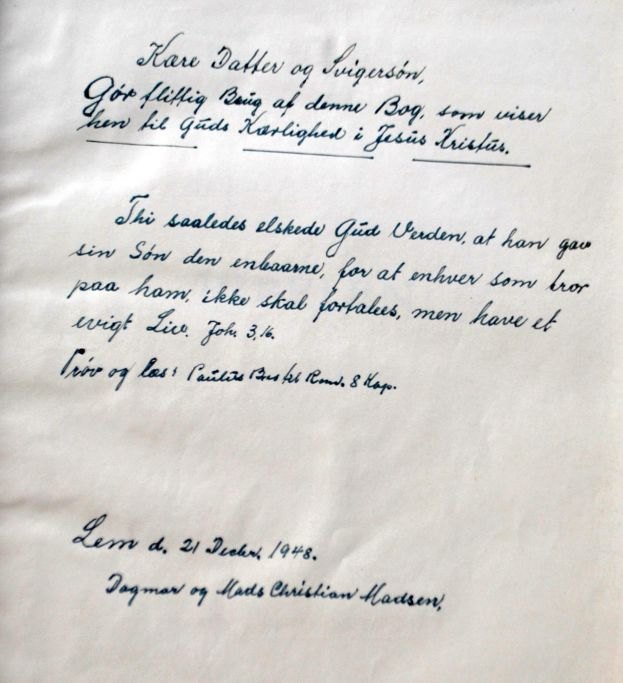 Kære Datter og Svigersón,
Gør flittig Brug af denne Bog, som viser
hen til Guds Kærlighed i Jesus Kristus.
Thi saaledes elskede Gud Verden, at han gav
sin Søn den enbaarne, for at enhver som tror
paa ham, ikke skal fortabes, men have et
evigt Liv. Joh. 3,16.
Prøv og læs: Paulus Brev til Rom. 8 Kap.
Lem d. 21 Decbr. 1948.
Dagmar og Mads Christian Madsen.